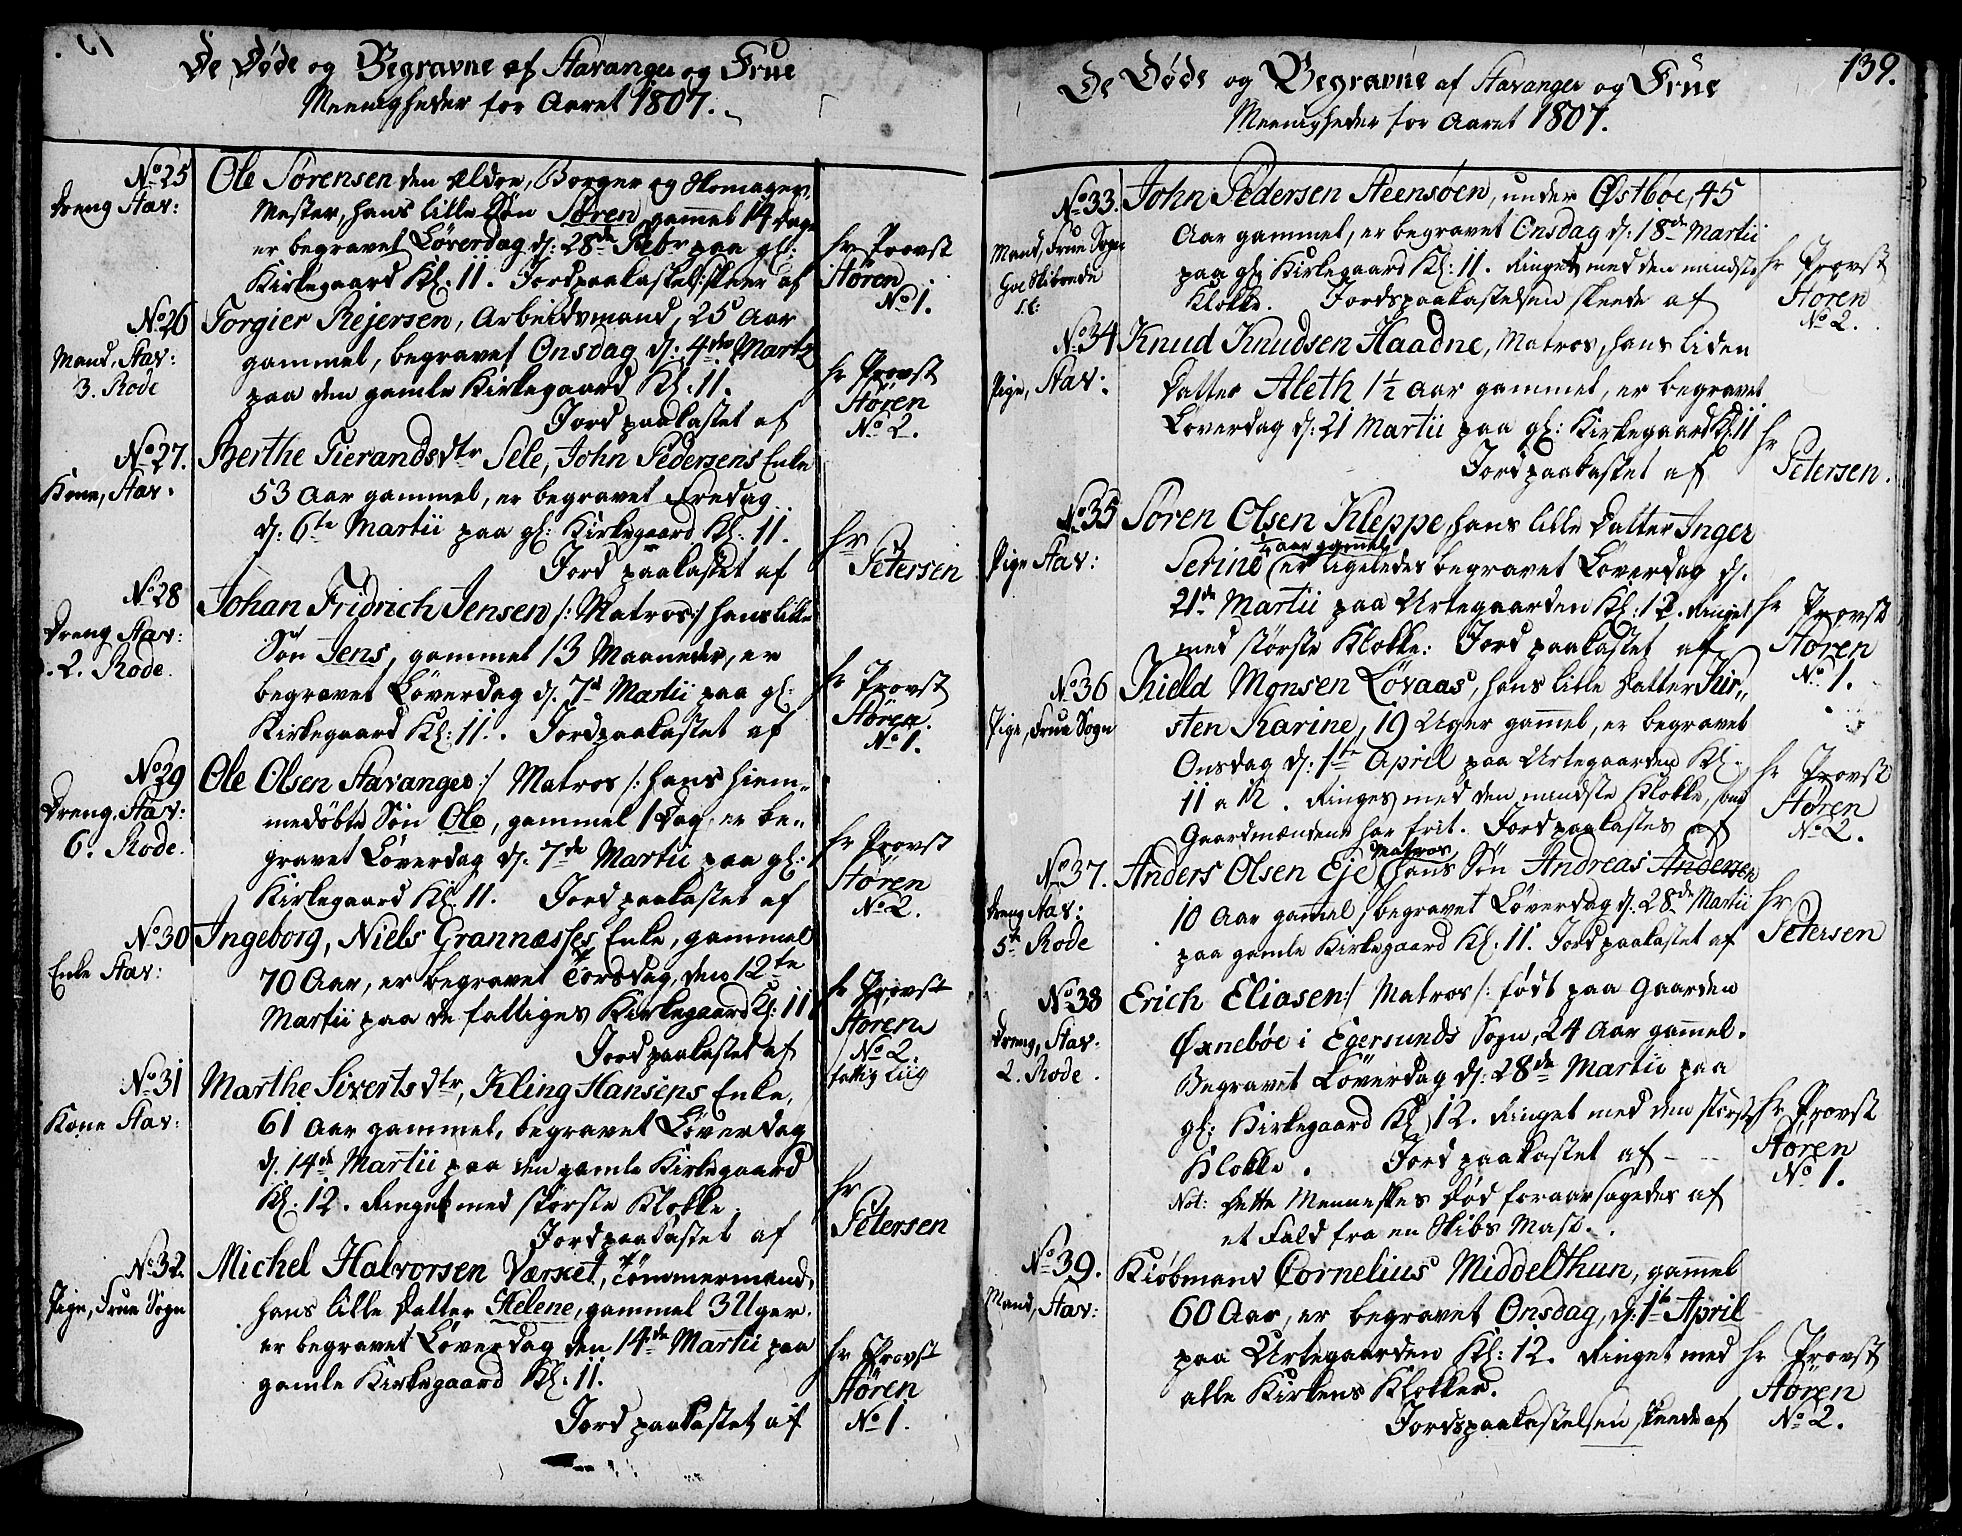 De Døde og Begravne af Stavanger og Frue
Meenigheder for Aaret 1807.
No 25
Dreng Stav:
Ole Sørensen den Ældre, Borger og Skomager
Mester, hans lille Søn Søren gammel 14 Dage
er begravet Løverdag d: 28de Febr paa gl:
Kirkegaard Kl. 11. Jordpaakastel: skeer af
hr Provst
Støren
No 1.
No 26
Mand, Stav:
3. Rode
Torgier Rejersen, Arbeidsmand, 25 Aar
gammel, begravet Onsdag d: 4de Martz
paa den gamle Kirkegaard Kl. 11.
Jord paakastet af
hr Provst
Støren
No 2.
No 27.
Kone, Stav.
Berthe Tierandsdtr Sele, John Pedersens Enke
53 Aar gammel, er begravet Fredag
d: 6te Martii paa gl: Kirkegaard Kl. 11.
Jord paakastet af
hr
Petersen
No 28
Dreng Stav:
2. Rode.
Johan Fridrich Jensen /: Matros :/ hans lille
Søn Jens, gammel 13 Maaneder, er
begravet Løverdag d. 7d Martii paa gl:
Kirkegaard Kl: 11. Jordpaakastet af
hr Provst
Støren.
No 1.
No 29
Dreng, Stav:
6. Rode.
Ole Olsen Stavanger :/ Matros /: hans hiem-
medøbte Søn Ole, gammel 1 Dag, er be-
gravet Løverdag d: 7de Martii paa gl:
Kirkegaard Kl. 11. Jord paakastet af
hr Provst
Støren
No 2.
No 30
Enke Stav:
Ingeborg, Niels Grannæsses Enke, gammel
70 Aar, er begravet Torsdag, den 12te
Martii paa de fattiges Kirkegaard Kl: 11
Jord paakastet af
hr Provst
Støren
No 2.
fattig Liig
No 31
Kone Stav:
Marthe Sivertsdtr, Kling Hansens Enke,
61 Aar gammel, begravet Løverdag
d. 14de Martii paa den gamle Kirkegaard
Kl. 12. Ringet med største Klokke.
Jordpaakastet af
hr
Petersen
No 32.
Pige, Frue Sogn
Michel Halvorsen Værket, Tømmermand,
hans lille Datter Helene, gammel 3 Uger.
er begravet Løverdag den 14de Martii paa
gamle Kirkegaard Kl. 11.
Jord paakastet af
hr Provst
Støren
No 1.
139.
De Døde og Begravne af Stavanger og Frue
Meenigheder for Aaret 1807.
No 33.
Mand, Frue Sogn
John Pedersen Steensøen, under Østbøe, 45
Aar gammel, er begravet Onsdag d: 18de Martii
paa gl: Kirkegaard Kl: 11. Ringet med den mindste
Klokke. Jordspaakastelsen skeede af
hr Provst
Støren
No 2.
No 34
Pige, Stav:
Knud Knudsen Haadne, Matros, hans liden
Datter Aleth 1½ Aar gammel, er begravet
Løverdag d: 21 Martii paa gl: Kirkegaard Kl: 11
Jordpaakastet af
hr
Petersen.
No 35
Pige Stav:
Søren Olsen Kleppe, hans lille Datter Inger
¼ aar gammel
Serine (er ligeledes begravet Løverdag d.
21de Martii paa Urtegaarden Kl: 12. Ringet
med største Klokke: Jord paakastet af
hr Provst
Støren
No 1.
No 36
Pige, Frue Sogn
Kield Monsen Løvaas, hans lille Datter Kir-
sten Karine, 19 Uger gamel, er begravet
Onsdag d: 1te April paa Urtegaarden Kl.
11 a 12. Ringes med den mindste Klokke, som
Gaardmændene har frit. Jord paakastes af
hr Provst
Støren
No 2.
No 37.
Dreng Stav:
5te Rode
Matros
Anders Olsen Eje (hans Søn Andreas Andersen
10 Aar gamel, begravet Løverdag d: 28de Martii
paa gamle Kirkegaard Kl. 11. Jordpaakastet af
hr
Petersen
No 38
Dreng, Stav:
2. Rode.
Erich Eliasen :/ Matros /: født paa Gaarden
Øxnebøe i Egersunds Sogn, 24 Aar gamel.
Begravet Løverdag d: 28de Martii paa
gl: Kirkegaard Kl 12. Ringet med den største
Klokke. Jord paakastet af
Not: Dette Menneskes Død foraarsagedes af
et Fald fra en Skibs Mast.
hr Provst
Støren
No 1.
No 39.
Mand, Stav:
Kiøbmand Cornelius Middelthun, gammel
60 Aar, er begravet Onsdag, d: 1te April
paa Urtegaarden Kl: 12. Ringet med
alle Kirkens Klokker.
Jordspaakastelsen skeede af
hr Provst
Støren
No 2.